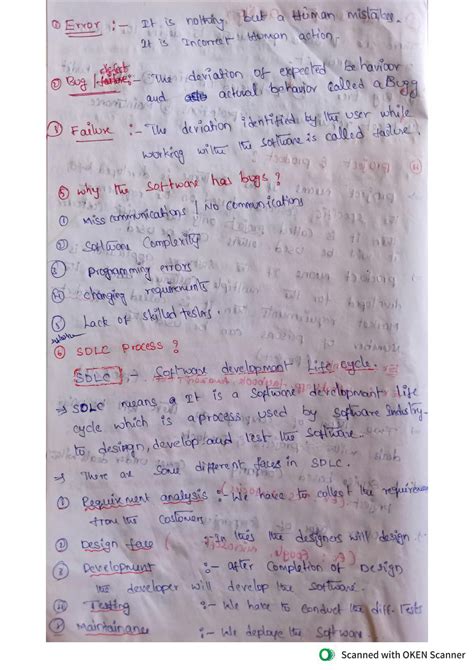 ① Error :- It is nothing but a Human mistakes.
It is Incorrect Human action.
② Bug / defect :- The deviation of expected behaviour
and actual behavior called a Bugg
③ Failure :- The deviation identified by the user while
working with the software is called failure.
⑤ why the Software has bugs?
① Miss communications / No communications
② Software Complexity
③ programming errors
④ changing requirements
⑤ Lack of skilled testers.
⑥ SDLC Process?
SDLC :- Software development Life cycle.
→ SDLC means a It is a Software development life
cycle which is a process used by software Industry
to design, develop and test the software.
→ There are some different faces in SDLC.
① Requirement analysis :- We have to collect the requirement
from the Customers
② Design face :- In this the designers will design.
③ Development :- after completion of Design
the developer will develop the software.
④ Testing :- We have to conduct the diff. Tests
⑤ Maintainance :- We deploye the Software
Scanned with OKEN Scanner